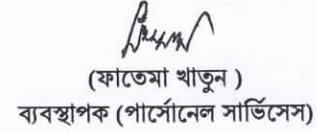 (ফাতেমা খাতুন )
ব্যবস্থাপক (পার্সোনেল সার্ভিসেস)